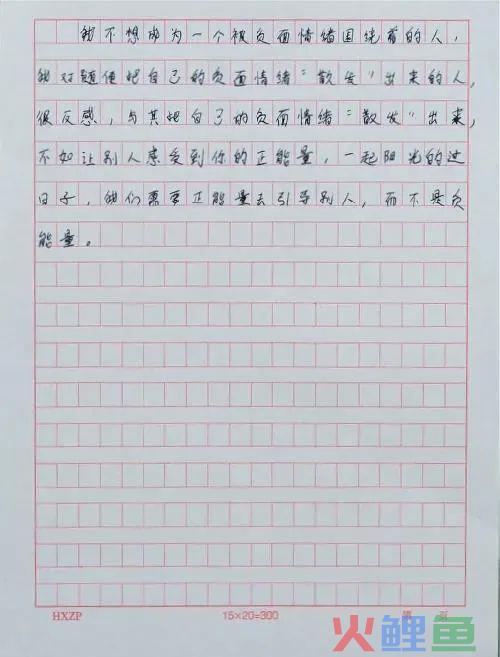 我不想成为一个被负面情绪围绕着的人,
我对随便把自己的负面情绪“散发”出来的人,
很反感,与其把自己的负面情绪“散发”出来,
不如让别人感受到你的正能量,一起阳光的过
日子,我们需要正能量去引导别人,而不是负
能量。
HXZP 15×20=300 第 页
火鲤鱼